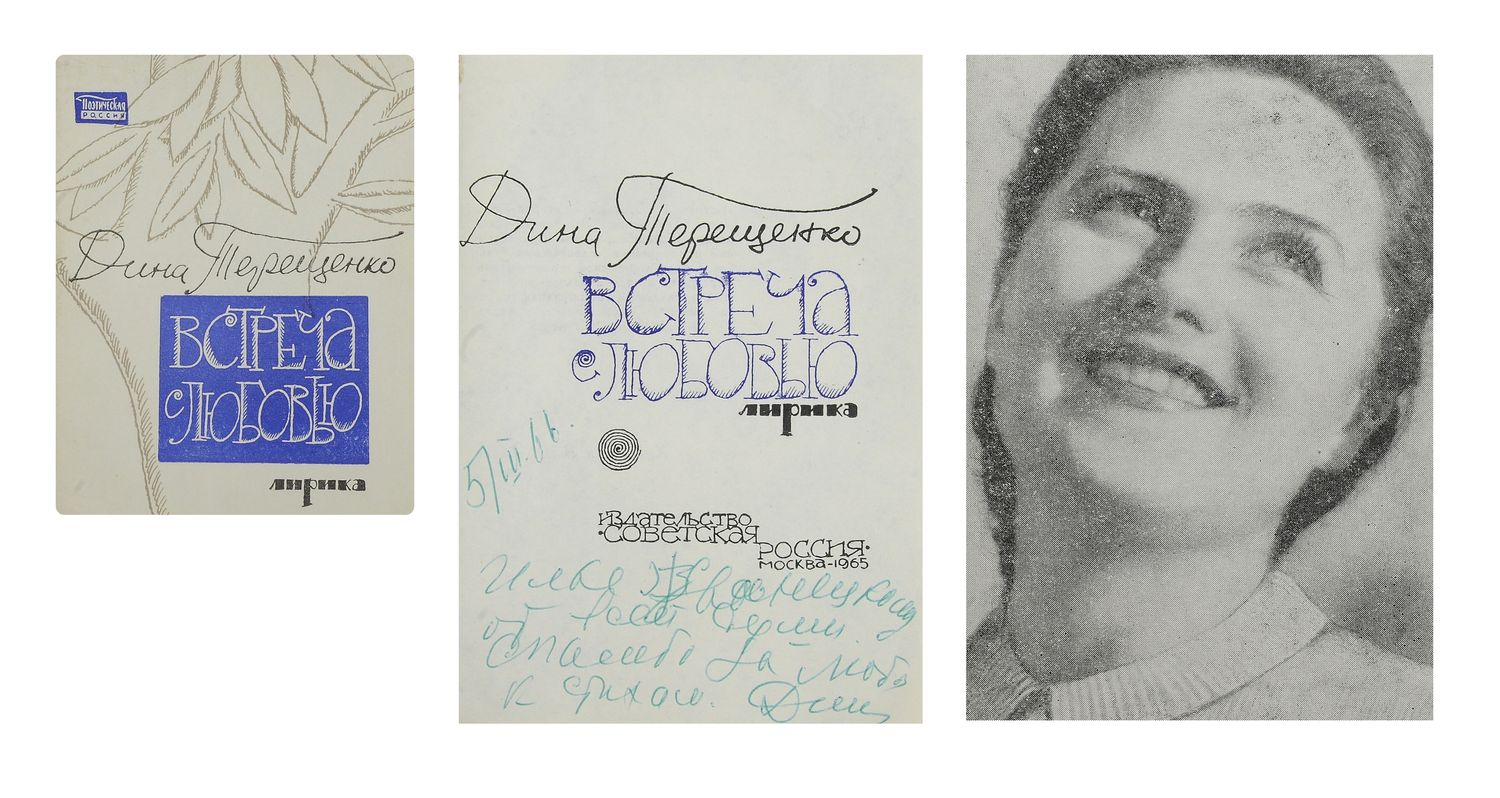 Поэтическая
Россия
Дина Терещенко
ВСТРЕЧА
с ЛЮБОВЬЮ
лирика
Дина Терещенко
ВСТРЕЧА
с ЛЮБОВЬЮ
лирика
5/III.66.
ИЗДАТЕЛЬСТВО
·СОВЕТСКАЯ
РОССИЯ·
МОСКВА-1965
Илье
от всей души.
Спасибо за любовь
к стихам. Дина